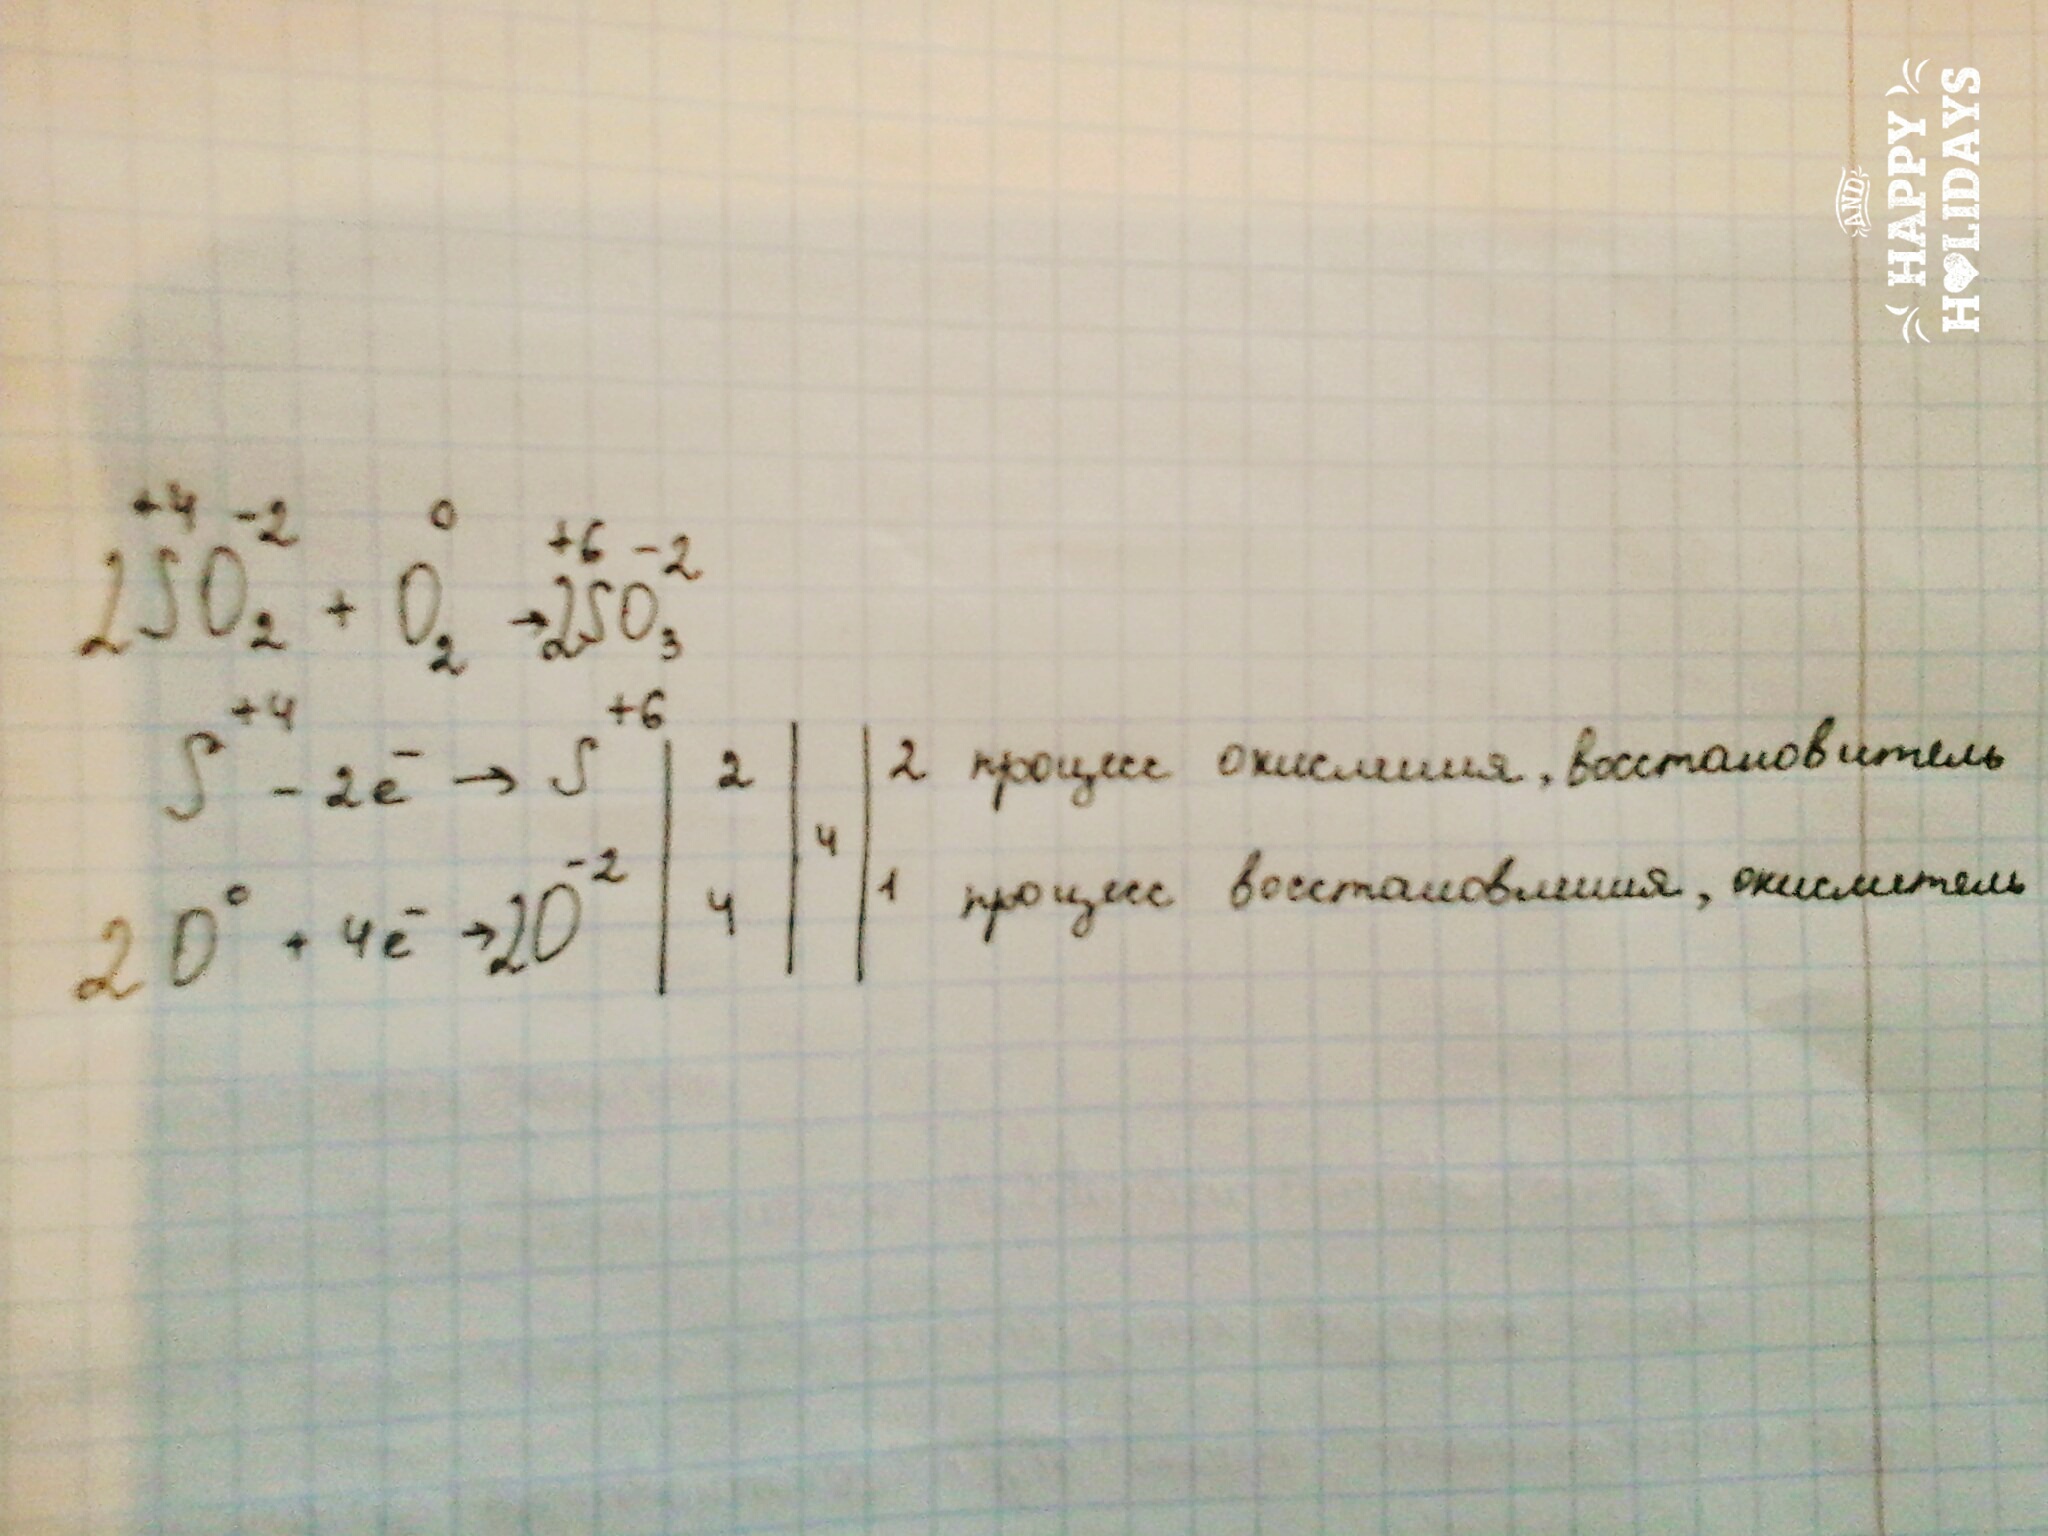 +4 -2 0 +6 -2
2SO2 + O2 → 2SO3
S+4 - 2e- → S+6 | 2 | | 2 процесс окисления, восстановитель
4
2O0 + 4e- → 2O-2 | 4 | | 1 процесс восстановления, окислитель
AND HAPPY HOLIDAYS